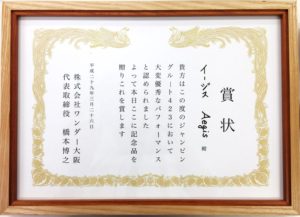 賞状
イージス Aegis 殿
貴方はこの度のジャンピン
グルート423において
大変優秀なパフォーマンス
と認められました
よって本日ここに記念品を
贈りこれを賞します
平成二十九年三月二十六日
株式会社ワンダー大阪
代表取締役 橋本博之